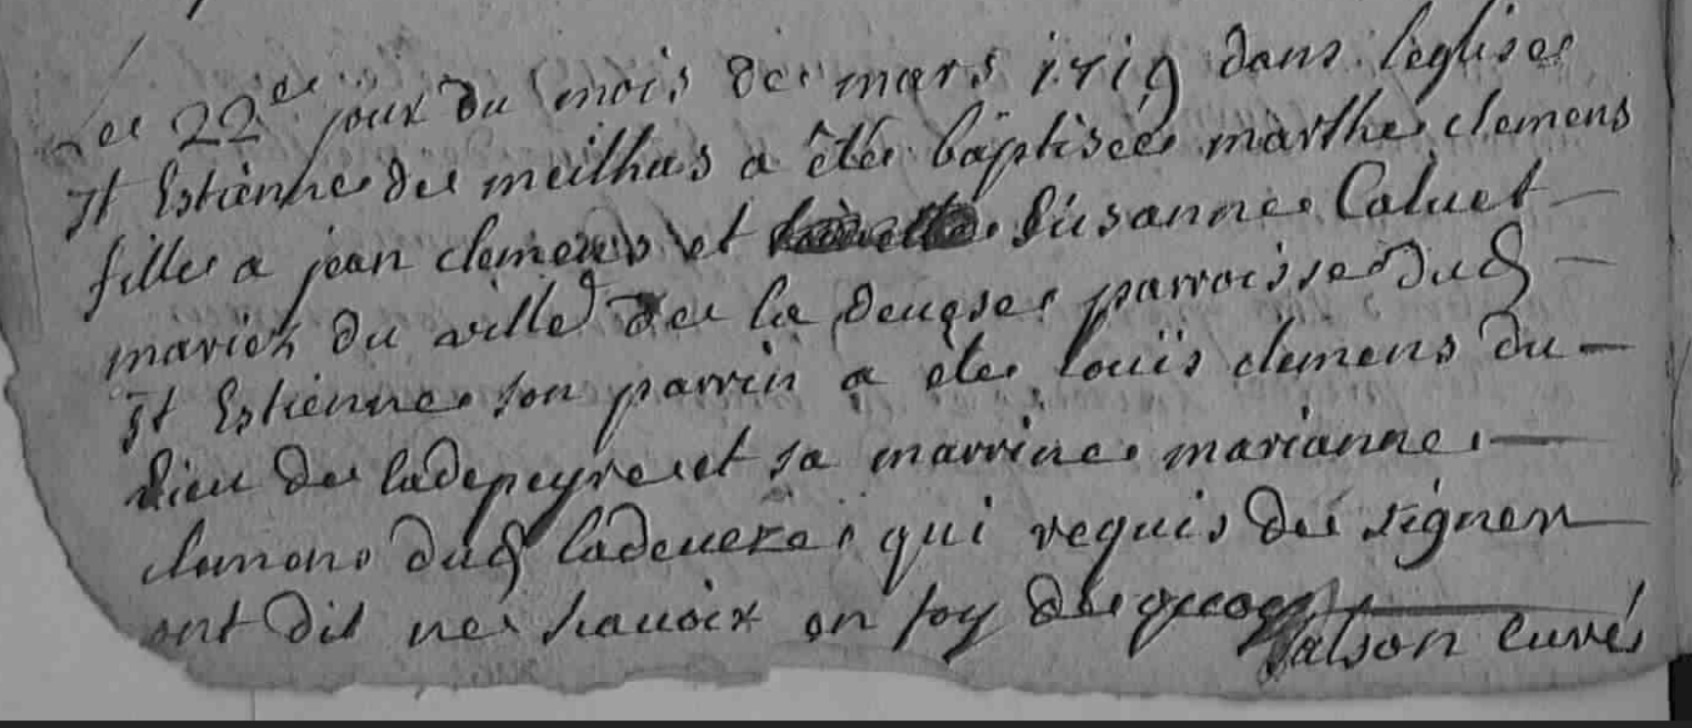 Le 22e jour du mois de mars 1719 dans l'eglise
St Estienne de meilhas a été baptisée marthe clemens
fille a jean clemens et Susanne Caluet
mariés du ville de la parroisse dud
St Estienne son parrin a ete louïs clemens du
lieu de ladepeyre et sa marrine marianne
clemens dud qui requis de signer
ont dit ne scauoir en foy de quoy
Salson curé